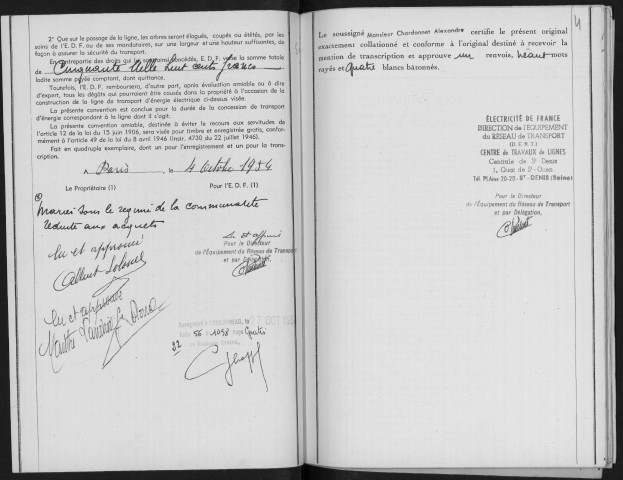 2° Que sur le passage de la ligne, les arbres seront élagués, coupés ou étêtés, par les
soins de l'E. D. F. ou de ses mandataires, sur une largeur et une hauteur suffisantes, de
façon à assurer la sécurité du transport.
En contrepartie des droits qui lui sont ainsi concédés, E. D. F. verse la somme totale
de Cinquante Mille huit cents francs
ladite somme payée comptant, dont quittance.
Toutefois, l'E. D. F. remboursera, d'autre part, après évaluation amiable ou à dire
d'expert, tous les dégâts qui pourraient être causés dans la propriété à l'occasion de la
construction de la ligne de transport d'énergie électrique ci-dessus visée.
La présente convention est conclue pour la durée de la concession de transport
d'énergie correspondant à la ligne dont il s'agit.
La présente convention amiable, destinée à éviter le recours aux servitudes de
l'article 12 de la loi du 15 juin 1906, sera visée pour timbre et enregistrée gratis, confor-
mément à l'article 49 de la loi du 8 avril 1946 (instr. 4730 du 22 juillet 1946).
Fait en quadruple exemplaire, dont un pour l'enregistrement et un pour la trans-
cription.
A Paris, le 4 Octobre 1954
Le Propriétaire (1)
Pour l'E. D. F. (1)
mariés sous le régime de la communauté
réduite aux acquêts
Lu et approuvé
Lu et approuvé
Pour le Directeur
de l'Équipement du Réseau de Transport
et par Délégation,
Lu et approuvé
OCT 195
32 56 1098 Gratis
4
Le soussigné Monsieur Chardonnet Alexandre certifie le présent original
exactement collationné et conforme à l'original destiné à recevoir la
mention de transcription et approuve un renvois, néant mots
rayés et quatre blancs bâtonnés.
ÉLECTRICITÉ DE FRANCE
DIRECTION de l'ÉQUIPEMENT
du RÉSEAU de TRANSPORT
(D. E. R. T.)
CENTRE de TRAVAUX de LIGNES
Centrale de St Denis
1, Quai de St-Ouen
Tél. PLAine 20-20 - St-DENIS (Seine)
Pour le Directeur
de l'Équipement du Réseau de Transport
et par Délégation,